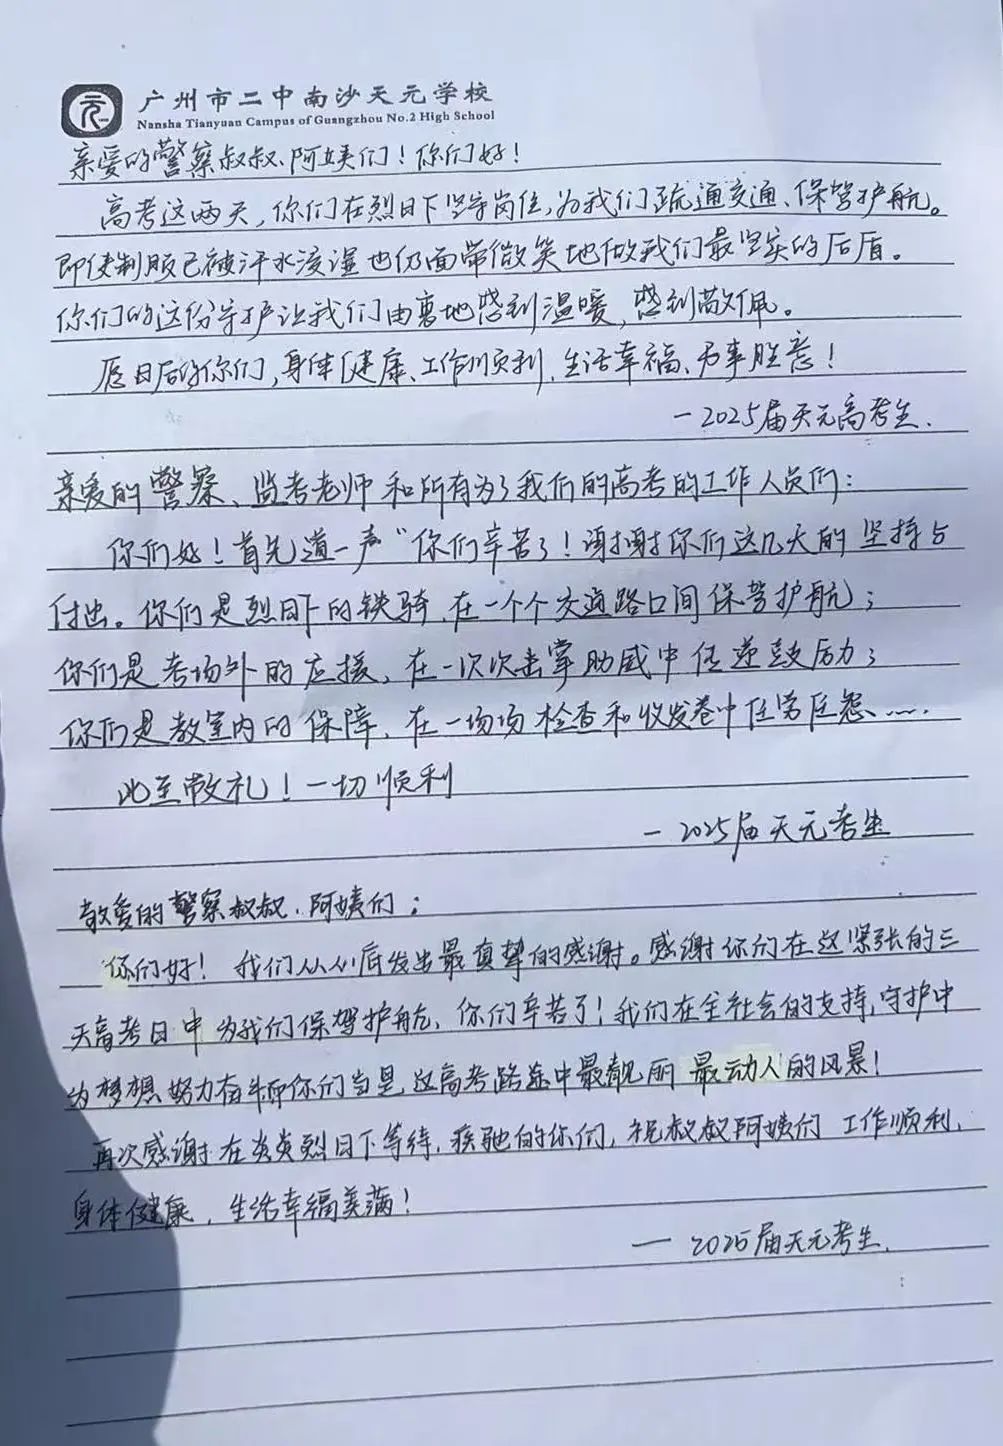 广州市二中南沙天元学校
Nansha Tianyuan Campus of Guangzhou No.2 High School
亲爱的警察叔叔、阿姨们！你们好！
高考这两天，你们在烈日下坚守岗位，为我们疏通交通、保驾护航。
即使制服已被汗水浸湿也仍面带微笑地做我们最坚实的后盾。
你们的这份守护让我们由衷地感到温暖，感到敬佩。
愿日后的你们，身体健康、工作顺利、生活幸福、万事胜意！
一2025届天元高考生.
亲爱的警察、监考老师和所有为了我们的高考的工作人员们：
你们好！首先道一声“你们辛苦了！谢谢你们这几天的坚持与
付出。你们是烈日下的铁骑，在一个个交通路口间保驾护航；
你们是考场外的应援，在一次次击掌助威中传递鼓励；
你们是教室内的保障，在一场场检查和收发卷中任劳任怨……
此至敬礼！一切顺利
一2025届天元考生
敬爱的警察叔叔、阿姨们：
你们好！我们从心底发出最真挚的感谢。感谢你们在这紧张的三
天高考日中为我们保驾护航，你们辛苦了！我们在全社会的支持，守护中
为梦想努力奋斗而你们当是这高考路途中最靓丽最动人的风景！
再次感谢在炎炎烈日下等待，疾驰的你们，祝叔叔阿姨们工作顺利，
身体健康，生活幸福美满！
一2025届天元考生.